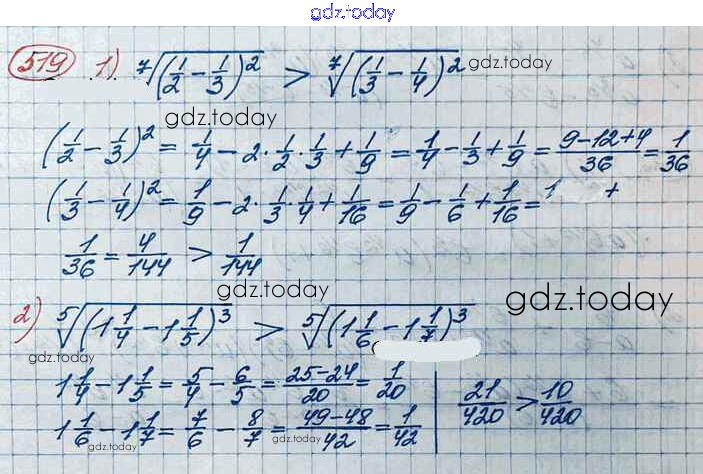 gdz.today
519 1) ⁷√(1/2 − 1/3)² > ⁷√(1/3 − 1/4)² gdz.today
gdz.today
(1/2 − 1/3)² = 1/4 − 2 · 1/2 · 1/3 + 1/9 = 1/4 − 1/3 + 1/9 = (9−12+4)/36 = 1/36
(1/3 − 1/4)² = 1/9 − 2 · 1/3 · 1/4 + 1/16 = 1/9 − 1/6 + 1/16 = 1 +
1/36 = 4/144 > 1/144
gdz.today
2) ⁵√(1 1/4 − 1 1/5)³ > ⁵√(1 1/6 − 1 1/7)³
gdz.today
1 1/4 − 1 1/5 = 5/4 − 6/5 = (25−24)/20 = 1/20 21/420 > 10/420
gdz.today
1 1/6 − 1 1/7 = 7/6 − 8/7 = (49−48)/42 = 1/42
gdz.today
gdz.today